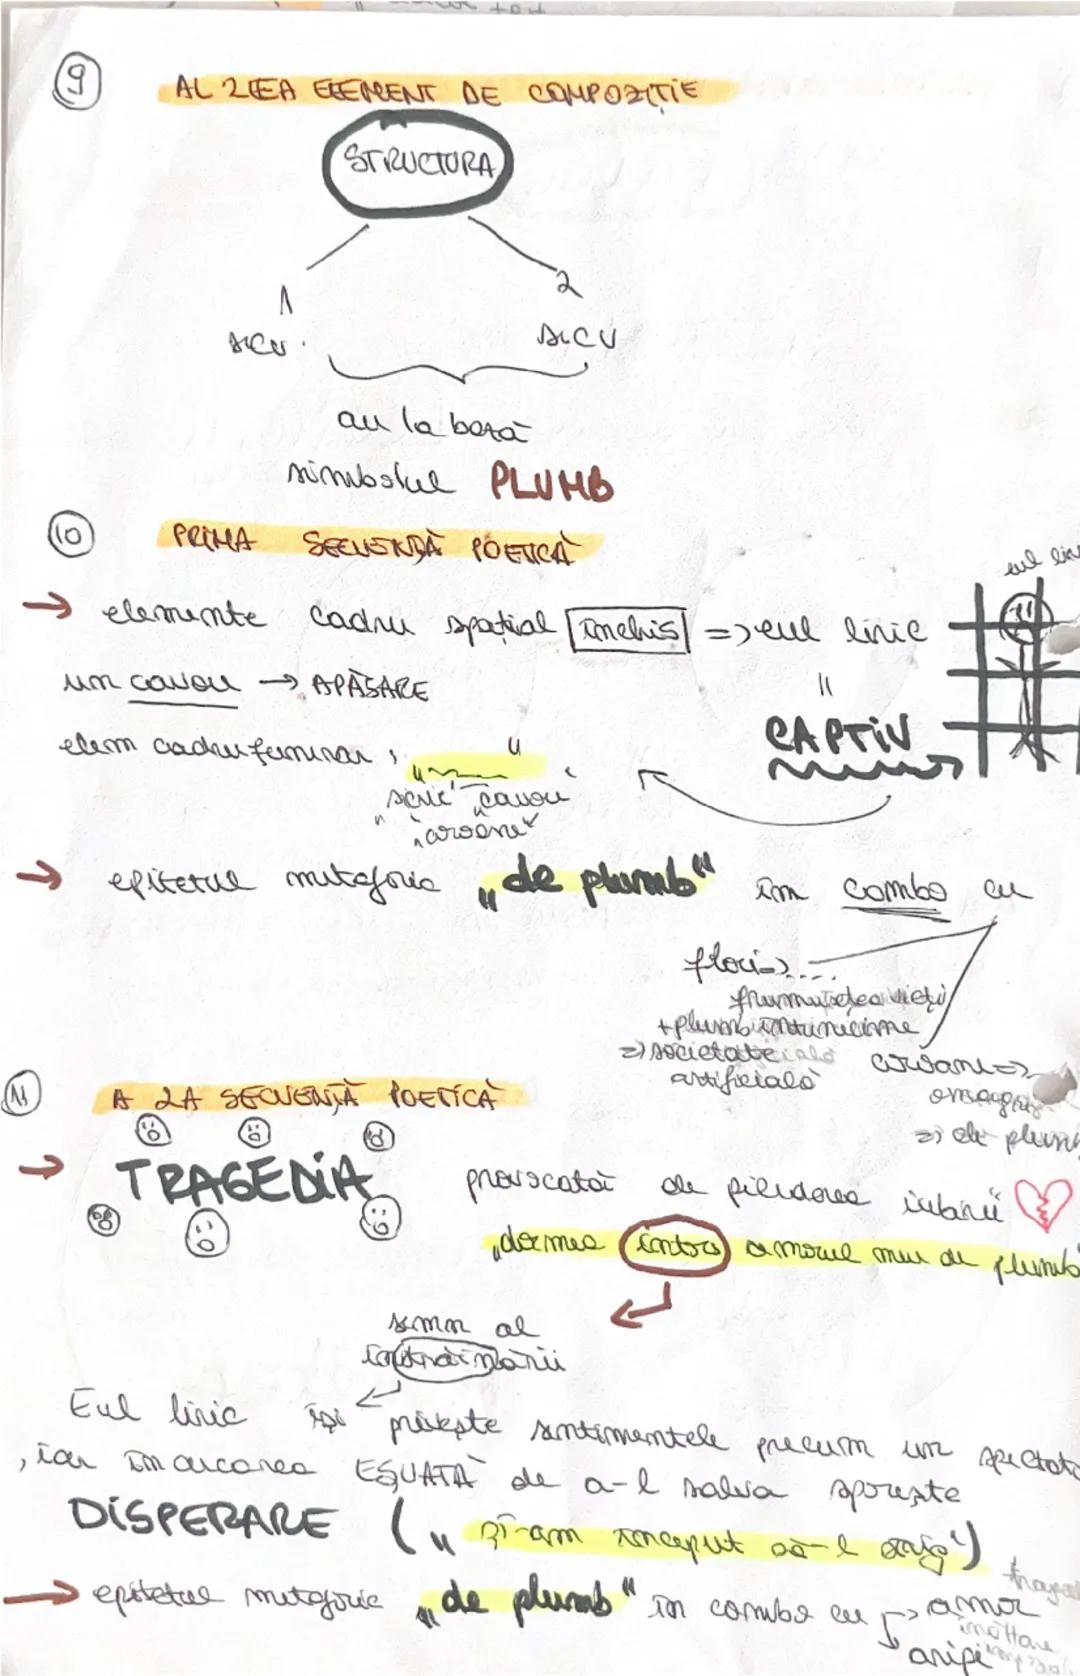 9
AL 2LEA ELEMENT DE COMPOZIȚIE
STRUCTURA
1 2
secv. secv
au la bază
simbolul PLUMB
10 PRIMA SECVENȚĂ POETICĂ
eul liric
→ elemente cadru spațial închis => eul liric
un cavou → APĂSARE
"
CAPTIV
elem cadru funerar ; „ "
„sicrie" „cavou"
„coroane"
→ epitetul metaforic „de plumb" în combo cu
flori => ....
frumusețea vieții
+ plumb întunecime
=> societate
artificială
coroane =>
omagiu
=> de plumb
11 A 2A SECVENȚĂ POETICĂ
→ TRAGEDIA provocată de pierderea iubirii
„dormea întors amorul meu de plumb"
semn al
înstrăinării
Eul liric își privește sentimentele precum un spectator
, iar încercarea EȘUATĂ de a-l salva sporește
DISPERARE („și-am început să-l strig")
→ epitetul metaforic „de plumb" în combo cu → amor
aripi